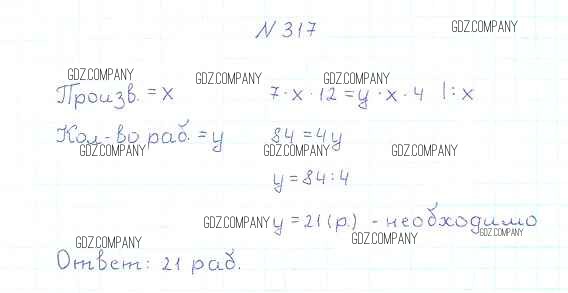 N 317 GDZ.COMPANY
GDZ.COMPANY GDZ.COMPANY GDZ.COMPANY
Произв. = x 7 · x · 12 = y · x · 4 |: x
Кол-во раб. = y 84 = 4y
GDZ.COMPANY GDZ.COMPANY GDZ.COMPANY
y = 84 : 4
GDZ.COMPANY y = 21 (р.) - необходимо
GDZ.COMPANY GDZ.COMPANY GDZ.COMPANY
Ответ: 21 раб.